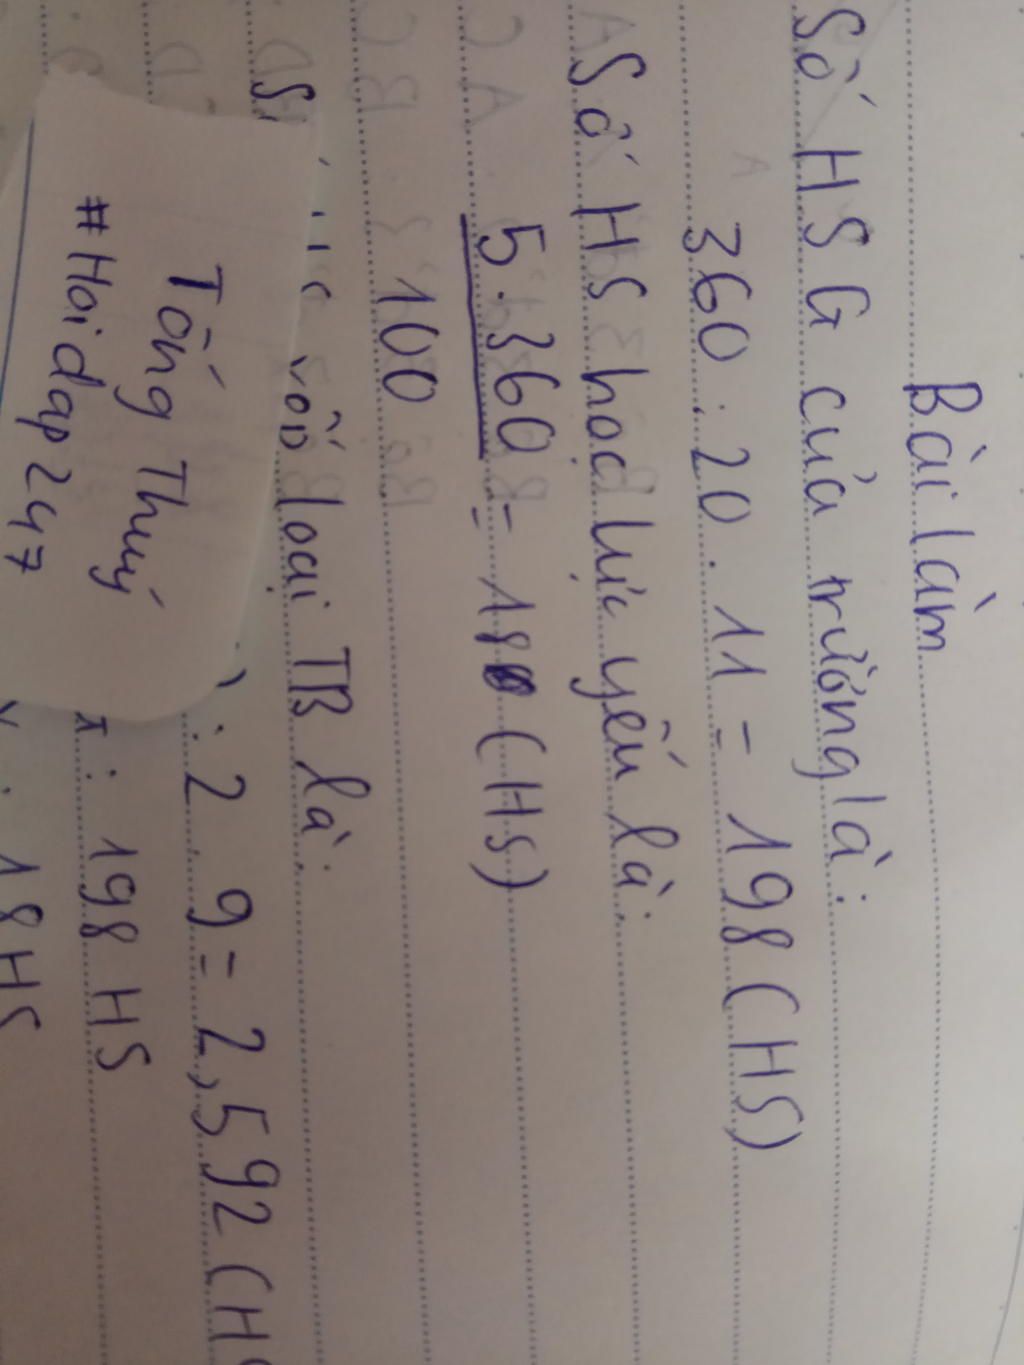 Bài làm
Số HSG của trường là:
360 : 20 . 11 = 198 (HS)
Số HS học lực yếu là:
5 . 360 = 18 (HS)
100
vốn loại TB là:
: 2 9 = 2,592 (HS
: 198 HS
18 HS
Tống Thuý
#Hoidap247